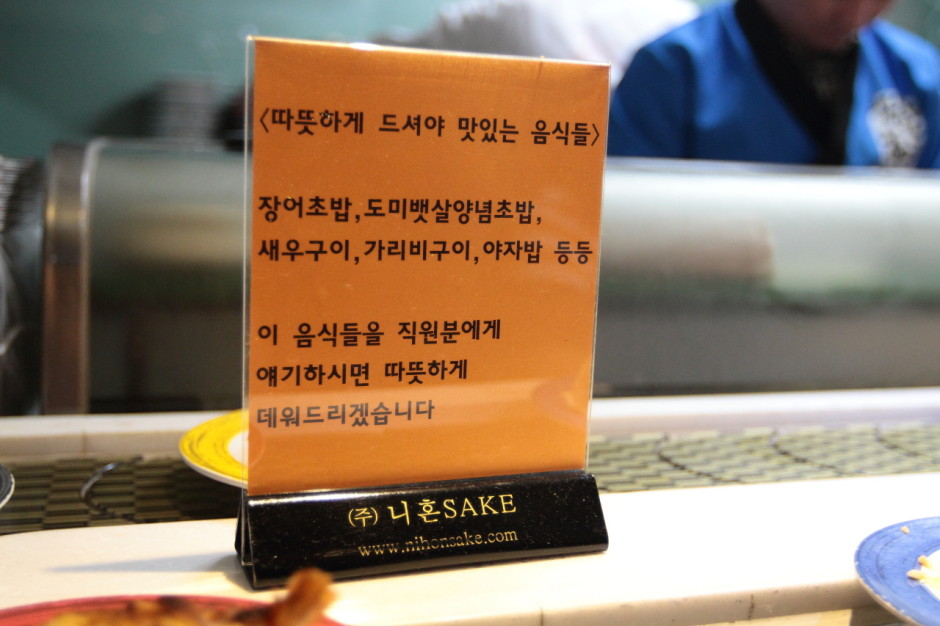 <따뜻하게 드셔야 맛있는 음식들>
장어초밥,도미뱃살양념초밥,
새우구이,가리비구이,야자밥 등등
이 음식들을 직원분에게
얘기하시면 따뜻하게
데워드리겠습니다
(주) 니혼SAKE
www.nihonsake.com